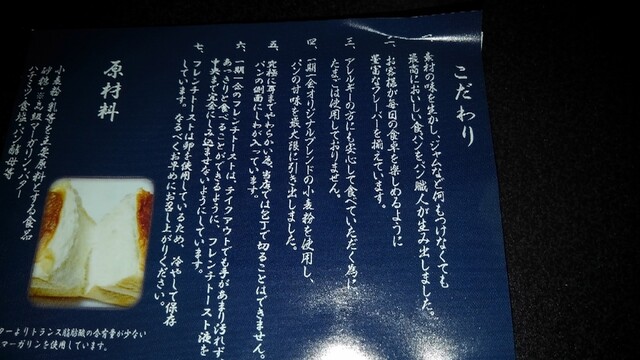 こだわり
一、素材の味を生かし、ジャムなど何もつけなくても
最高においしい食パンを、パン職人が生み出しました。
二、お客様が毎日の食卓を楽しめるように
豊富なフレーバーを揃えています。
三、アレルギーの方にも安心して食べていただく為に
たまごは使用しておりません。
四、一期一会オリジナルブレンドの小麦粉を使用し、
パンの甘味を最大限に引き出しました。
五、究極に耳までやわらかい為、当店では包丁で切ることはできません。
パンの側面にしわが入っています。
六、一期一会のフレンチトーストは、テイクアウトでも手があまり汚れず
あっさりと食べることができるように、フレンチトースト液を
中央まで完全にしみ込ませないようにしています。
七、フレンチトーストは卵を使用しているため、冷やして保存
しています。なるべくお早めにお召し上がりください。
原材料
小麦粉、乳等を主要原料とする食品
砂糖、高級マーガリン、バター
ハチミツ、食塩、パン酵母等
ターよりトランス脂肪酸の含有量が少ない
マーガリンを使用しています。